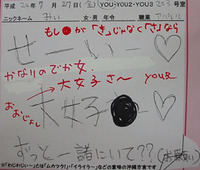 平成 24年 7月 27日 (金) YOU・YOU2・YOU3 203号室
ニックネーム みい 女・男 年令 職業
もし が「き」じゃなく「さ」なら
せーいー♡
かなりのでか女.
→大女子さ〜 you2
おおじょし
大女子 ♡
ずっと一緒にいて??(お願い)
※「わじわじぃー」とは「ムカつク!・イライラ〜」などの意味の沖縄方言です